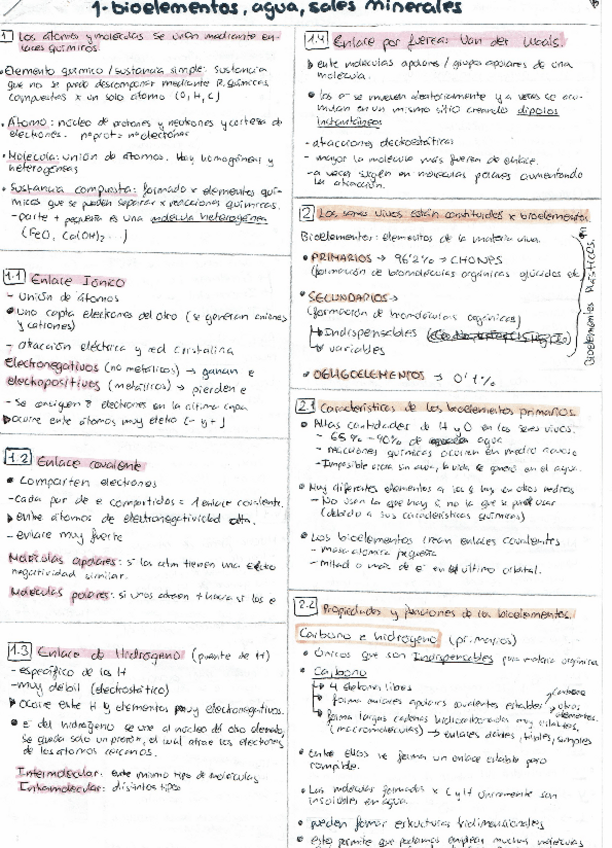 1- bioelementos, agua, sales minerales
1 Los átomos y moléculas se unen mediante en-
laces químicos
• Elemento químico / sustancia simple: sustancia
que no se puede descomponer mediante R. químicas
compuestas x un solo átomo (O, H, C)
• Átomo: núcleo de protones y neutrones y corteza de
electrones. nº prot = nº electrones
• Molécula: unión de átomos. Hay homogéneas y
heterogéneas
• Sustancia compuesta: formado x elementos quí-
micos que se pueden separar x reacciones químicas.
- parte + pequeña es una molécula heterogénea
(FeO, Ca(OH)2...)
1.1 Enlace Iónico
- unión de átomos
• uno capta electrones del otro (se generan aniones
y cationes)
- atracción eléctrica y red cristalina
Electronegativos (no metálicos) → ganan e
electropositivos (metálicos) → pierden e
- Se consiguen 8 electrones en la última capa
ocurre entre átomos muy eletro (- y +)
1.2 Enlace covalente
• Comparten electrones
- cada par de e compartidos = 1 enlace covalente.
entre átomos de electronegatividad alta.
- enlace muy fuerte
Moléculas apolares: si los atm tienen una
negatividad similar.
Moléculas polares: si unos atraen + fuerza si los e
1.3 Enlace de Hidrógeno (puente de H)
- específico de los H
- muy débil (electrostático)
ocurre entre H y elementos muy electronegativos.
• e- del hidrógeno se une al núcleo del otro elemento,
se queda solo un protón, el cual atrae los electrones
de los átomos cercanos.
Intermolecular: entre mismo tipo de moléculas
Intramolecular: distintos tipos
1.4 Enlace por fuerzas Van der Waals.
entre moléculas apolares / grupos apolares de una
molécula.
• los e- se mueven aleatoriamente y a veces se acu-
mulan en un mismo sitio creando dipolos
instantáneos
- atracciones electrostáticas
- mayor la molécula más fuerza de enlace.
- a veces surgen en moléculas polares aumentando
la atracción.
2 Los seres vivos están constituidos x bioelementos
Bioelementos: elementos de la materia viva.
• PRIMARIOS → 96'2% → CHONPS
(formación de biomoléculas orgánicas glúcidos etc
• SECUNDARIOS →
(formación de biomoléculas orgánicas)
Indispensables
variables
• OLIGOELEMENTOS → 0'1%
Bioelementos Plásticos.
2.1 Características de los bioelementos primarios.
• Altas cantidades de H y O en los seres vivos.
- 65% - 90% de agua
- reacciones químicas ocurren en medio acuoso
- Imposible vida sin agua, la vida se generó en el agua.
• Muy diferentes elementos a los q hay en otros medios
- No usan lo que hay si no lo que se puede usar
(debido a sus características químicas)
• Los bioelementos crean enlaces covalentes
- masa atómica pequeña
- mitad o más de e- en el último orbital.
2.2 Propiedades y funciones de los bioelementos.
Carbono e hidrógeno (primarios)
• únicos que son Indispensables para materia orgánica
• Carbono
4 eletrones libres
forma enlaces apolares covalentes estables
forma largas cadenas hidrocarbonadas muy estables,
(macromoléculas) → enlaces dobles, triples, simples
• Entre ellos se forma un enlace estable pero
rompible.
• Las moléculas formadas x C y H únicamente son
insolubles en agua.
• pueden formar estructuras tridimensionales
• esto permite que podamos emplear muchas moléculas